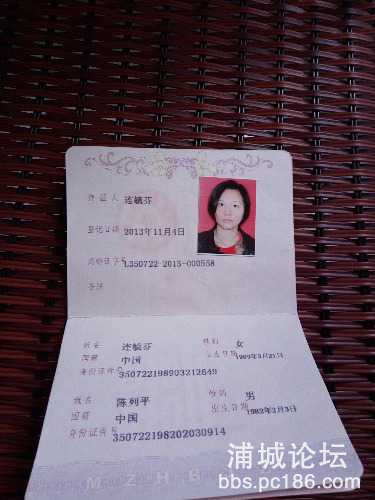 持证人 连毓芬
登记日期 2013年11月4日
离婚证字号 L350722-2013-000558
备注
姓名 连毓芬 性别 女
国籍 中国 出生日期 1989年3月21日
身份证件号 350722198903212649
姓名 陈列平 性别 男
国籍 中国 出生日期 1982年2月3日
身份证件号 350722198202030914
MZHB
浦城论坛
bbs.pc186.com